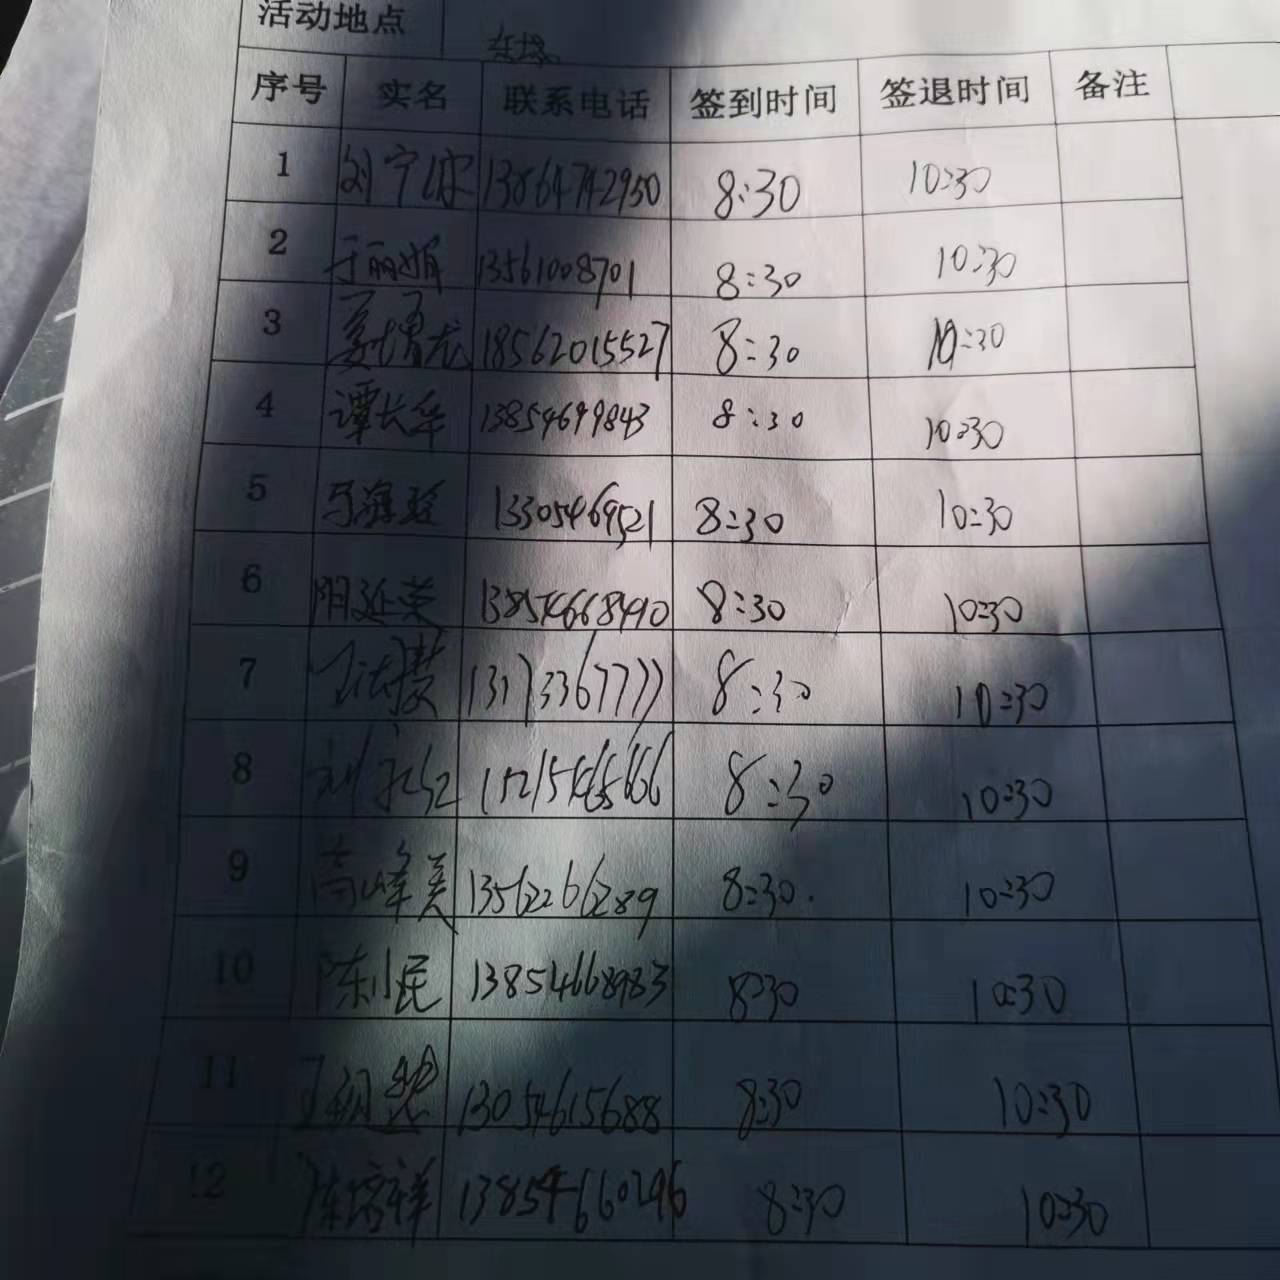 活动地点
序号 实名 联系电话 签到时间 签退时间 备注
1 刘 13864742950 8:30 10:30
2 于丽娟 13561008701 8:30 10:30
3 18562015527 8:30 10:30
4 谭长华 13854699843 8:30 10:30
5 马海 13305469521 8:30 10:30
6 阳延英 13854668490 8:30 10:30
7 13173367777 8:30 10:30
8 刘 8:30 10:30
9 高峰美 13562266289 8:30. 10:30
10 陈小民 13854668983 8:30 10:30
11 13054615688 8:30 10:30
12 陈培祥 13854660296 8:30 10:30